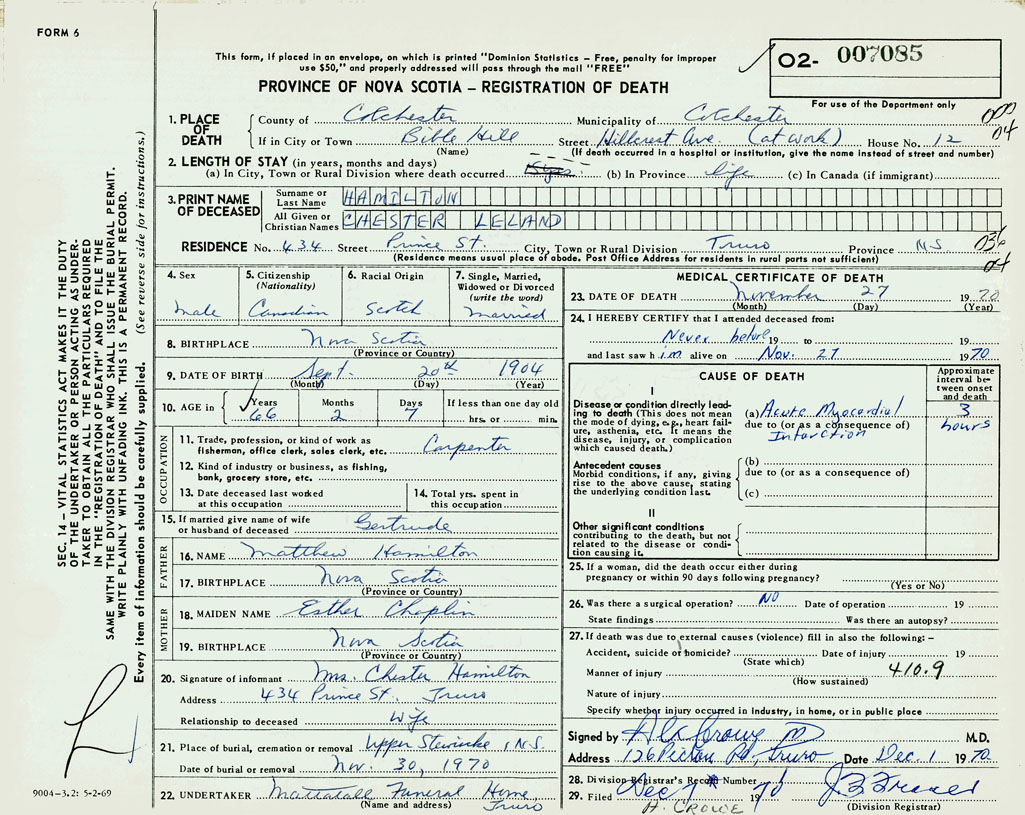 FORM 6
This form, if placed in an envelope, on which is printed "Dominion Statistics – Free, penalty for improper
use $50," and properly addressed will pass through the mail "FREE"
02- 007085
PROVINCE OF NOVA SCOTIA – REGISTRATION OF DEATH
For use of the Department only
1. PLACE OF DEATH
County of Colchester Municipality of Colchester
If in City or Town Bible Hill Street Hillcrest Ave (at work) House No. 12
04
(Name) (If death occurred in a hospital or institution, give the name instead of street and number)
2. LENGTH OF STAY (in years, months and days)
(a) In City, Town or Rural Division where death occurred (b) In Province life (c) In Canada (if immigrant)
3. PRINT NAME OF DECEASED
Surname or Last Name HAMILTON
All Given or Christian Names CHESTER LELAND
RESIDENCE No. 434 Street Prince St. City, Town or Rural Division Truro Province N.S.
(Residence means usual place of abode. Post Office Address for residents in rural parts not sufficient)
04
4. Sex Male
5. Citizenship (Nationality) Canadian
6. Racial Origin Scotch
7. Single, Married, Widowed or Divorced (write the word) Married
8. BIRTHPLACE Nova Scotia
(Province or Country)
9. DATE OF BIRTH Sept. 20th 1904
(Month) (Day) (Year)
10. AGE in Years 66 Months 2 Days 7 If less than one day old hrs. or min.
OCCUPATION
11. Trade, profession, or kind of work as
fisherman, office clerk, sales clerk, etc. Carpenter
12. Kind of industry or business, as fishing,
bank, grocery store, etc.
13. Date deceased last worked
at this occupation
14. Total yrs. spent in
this occupation
15. If married give name of wife
or husband of deceased Gertrude
FATHER
16. NAME Matthew Hamilton
17. BIRTHPLACE Nova Scotia
(Province or Country)
MOTHER
18. MAIDEN NAME Esther Chaplin
19. BIRTHPLACE Nova Scotia
(Province or Country)
20. Signature of informant Mrs. Chester Hamilton
Address 434 Prince St. Truro
Relationship to deceased Wife
21. Place of burial, cremation or removal Upper Stewiacke, N.S.
Date of burial or removal Nov. 30, 1970
22. UNDERTAKER Mattatall Funeral Home
(Name and address) Truro
MEDICAL CERTIFICATE OF DEATH
23. DATE OF DEATH November 27 1970
(Month) (Day) (Year)
24. I HEREBY CERTIFY that I attended deceased from:
Never before 19 to 19
and last saw him alive on Nov. 27 1970
CAUSE OF DEATH
Approximate interval between onset and death
I
Disease or condition directly leading to death (This does not mean the mode of dying, e.g., heart failure, asthenia, etc. It means the disease, injury, or complication which caused death.)
(a) Acute Myocardial
due to (or as a consequence of)
Infarction
3 hours
Antecedent causes
Morbid conditions, if any, giving rise to the above cause, stating the underlying condition last.
(b)
due to (or as a consequence of)
(c)
II
Other significant conditions
contributing to the death, but not related to the disease or condition causing it.
25. If a woman, did the death occur either during
pregnancy or within 90 days following pregnancy?
(Yes or No)
26. Was there a surgical operation? NO Date of operation 19
State findings Was there an autopsy?
27. If death was due to external causes (violence) fill in also the following: –
Accident, suicide or homicide? Date of injury 19
(State which)
Manner of injury 410.9
(How sustained)
Nature of injury
Specify whether injury occurred in industry, in home, or in public place
Signed by M.D.
Address 126 Pictou Rd, Truro Date Dec. 1 1970
28. Division Registrar's Record Number
29. Filed Dec 7 1970
H. CROWE (Division Registrar)
SEC. 14 – VITAL STATISTICS ACT MAKES IT THE DUTY
OF THE UNDERTAKER OR PERSON ACTING AS UNDER-
TAKER TO OBTAIN ALL THE PARTICULARS REQUIRED
IN THE "REGISTRATION OF DEATH" AND TO FILE THE
SAME WITH THE DIVISION REGISTRAR WHO SHALL ISSUE THE BURIAL PERMIT.
WRITE PLAINLY WITH UNFADING INK. THIS IS A PERMANENT RECORD.
Every item of information should be carefully supplied. (See reverse side for instructions.)
9004-3.2: 5-2-69